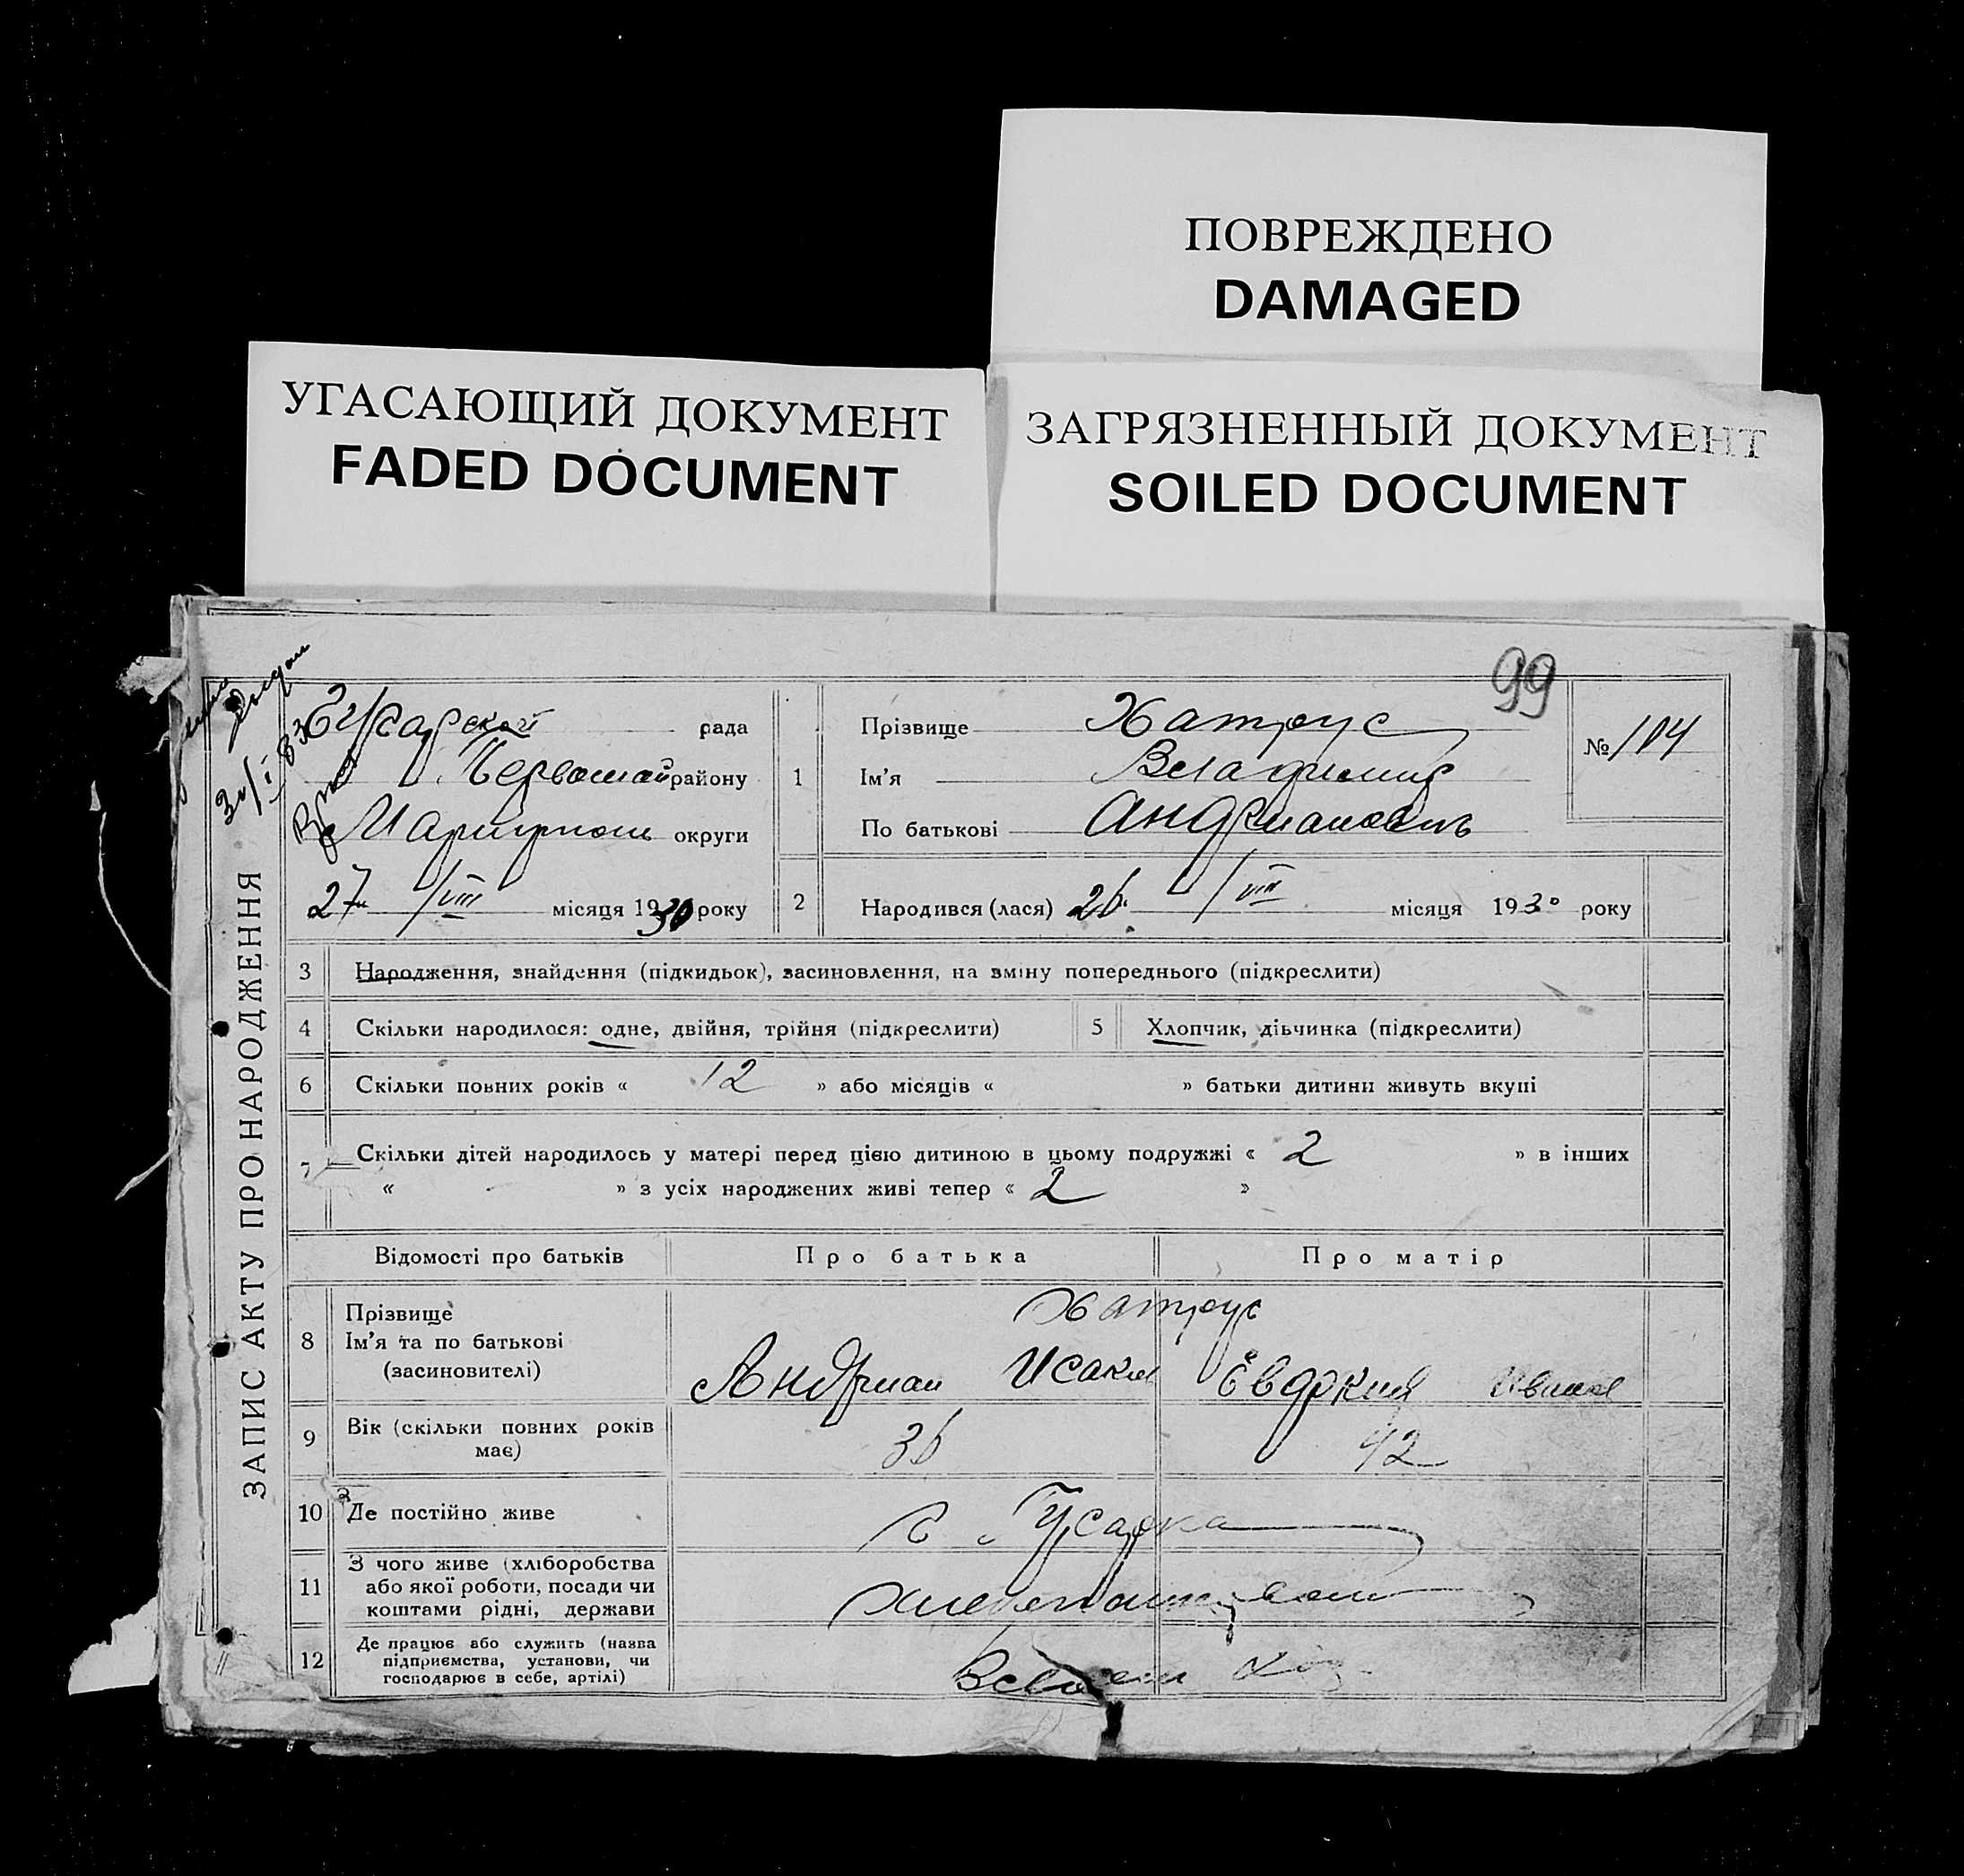 ПОВРЕЖДЕНО
DAMAGED
УГАСАЮЩИЙ ДОКУМЕНТ
FADED DOCUMENT
ЗАГРЯЗНЕННЫЙ ДОКУМЕНТ
SOILED DOCUMENT
99
ЗАПИС АКТУ ПРО НАРОДЖЕННЯ
рада
Первомай району
Мариупол округи
27 /VIII місяця 1930 року
1
Прізвище Хатрус
Ім'я Владимир
По батькові Андрианович
№ 104
2 Народився (лася) 26 /VIII місяця 1930 року
3 Народження, знайдення (підкидьок), засиновлення, на зміну попереднього (підкреслити)
4 Скільки народилося: одне, двійня, трійня (підкреслити)
5 Хлопчик, дівчинка (підкреслити)
6 Скільки повних років « 12 » або місяців « » батьки дитини живуть вкупі
7 Скільки дітей народилось у матері перед цією дитиною в цьому подружжі « 2 » в інших
« » з усіх народжених живі тепер « 2 »
Відомості про батьків Про батька Про матір
8 Прізвище Хатрус
Ім'я та по батькові
(засиновителі) Андриан Исаков Евдокия Ивано
9 Вік (скільки повних років
має) 36 42
10 Де постійно живе с Гусарка
11 З чого живе (хліборобства
або якої роботи, посади чи
коштами рідні, держави
12 Де працює або служить (назва
підприємства, установи, чи
господарює в себе, артілі)